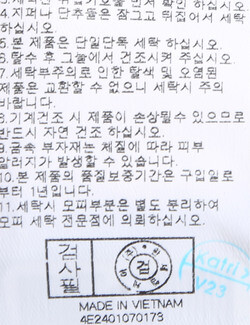 4.지퍼나 단추들은 잠그고 뒤집어서 세탁
하십시오.
5.본 제품은 단일단독 세탁 하십시오.
6.탈수 후 그늘에서 건조시켜 주십시오.
7.세탁부주의로 인한 탈색 및 오염된
제품은 교환할 수 없으니 세탁시 주의
바랍니다.
8.기계건조 시 제품이 손상될수 있으므로
반드시 자연 건조 하십시오.
9.금속 부자재는 체질에 따라 피부
알러지가 발생할 수 있습니다.
10.본 제품의 품질보증기간은 구입일로
부터 1년입니다.
11.세탁시 모피부분은 별도 분리하여
모피 세탁 전문점에 의뢰하십시오.
검
사필
검
Katri
V23
MADE IN VIETNAM
4E2401070173